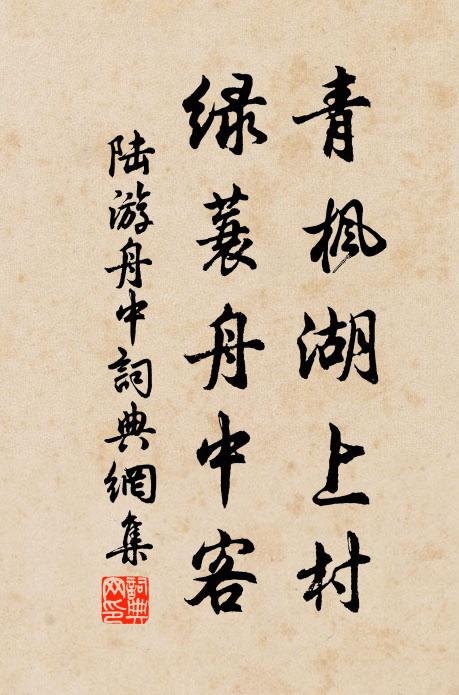 青楓湖上村
綠蓑舟中客
陸游舟中詞典網集
詞典網印